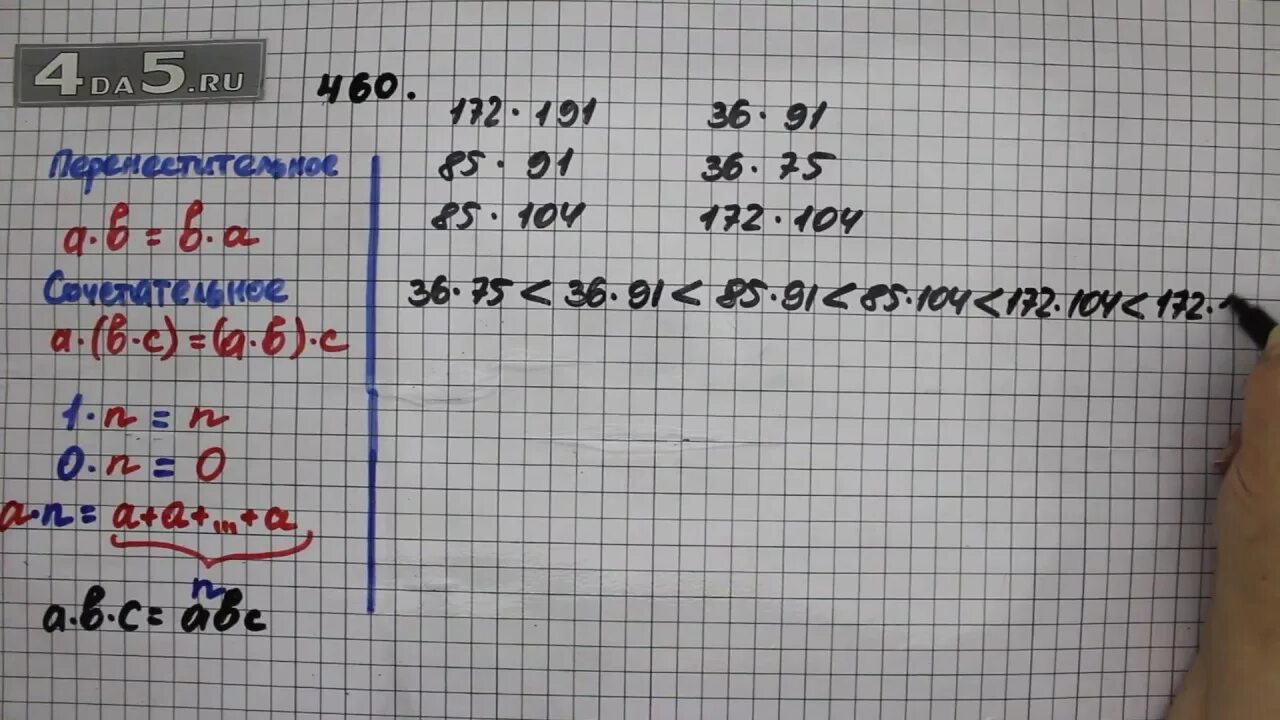 4DA5.RU
460.
172 · 191
36 · 91
85 · 91
36 · 75
85 · 104
172 · 104
36·75 < 36·91 < 85·91 < 85·104 < 172·104 < 172·
Переместительное
a·b = b·a
Сочетательное
a·(b·c) = (a·b)·c
1·n = n
0·n = 0
a·n = a+a+...+a
n
a·b·c = abc